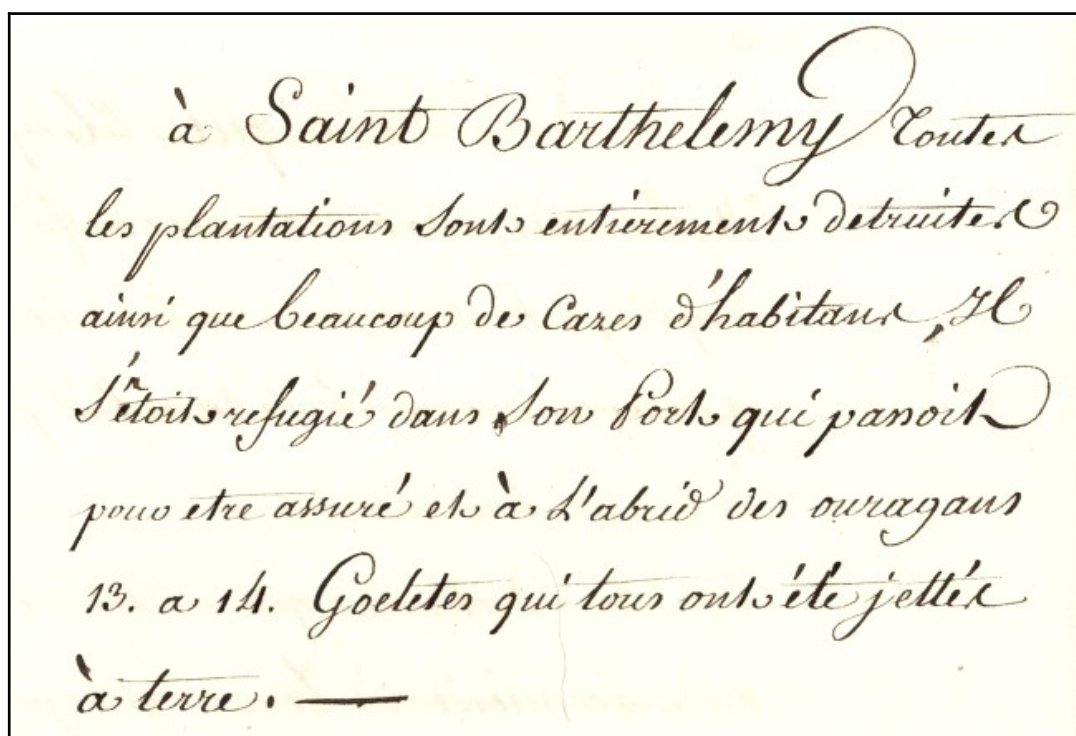 à Saint Barthelemy Toutes
les plantations sont entierement detruites
ainsi que beaucoup de Cazes d'habitans, Il
s'étoit refugié dans son Port qui passoit
pour etre assuré et à L'abrid des ouragans
13. a 14. Goeletes qui tous ont été jettés
à terre. —